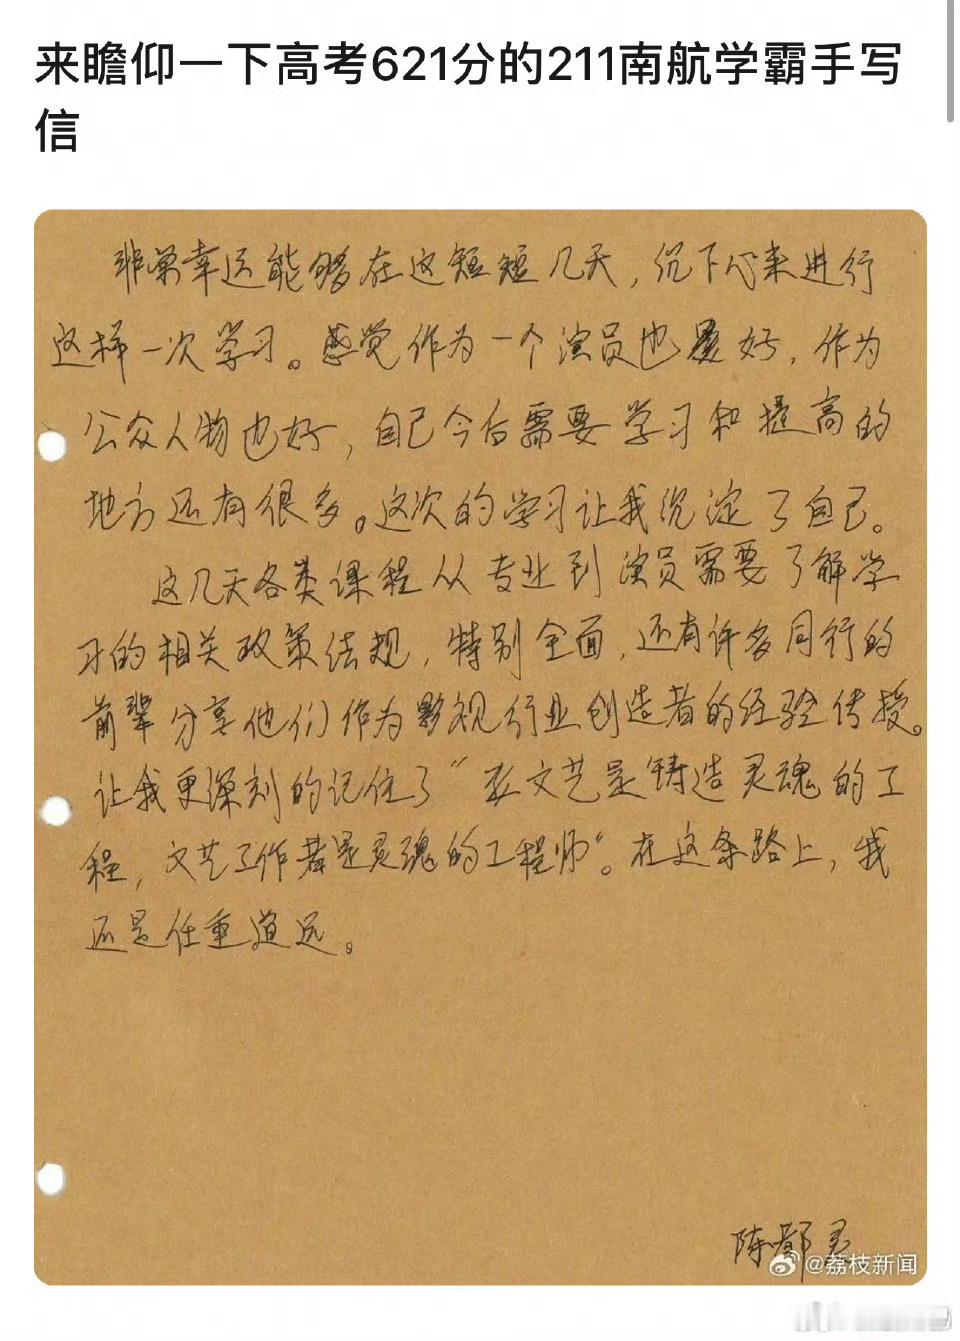 来瞻仰一下高考621分的211南航学霸手写
信
非常幸运能够在这短短几天，沉下心来进行
这样一次学习。感觉作为一个演员也好，作为
公众人物也好，自己今后需要学习和提高的
地方还有很多。这次的学习让我沉淀了自己。
这几天各类课程从专业到演员需要了解学
习的相关政策法规，特别全面，还有许多同行的
前辈分享他们作为影视行业创造者的经验传授。
让我更深刻的记住了“文艺是铸造灵魂的工
程，文艺工作者是灵魂的工程师”。在这条路上，我
还是任重道远。
陈都灵
@荔枝新闻